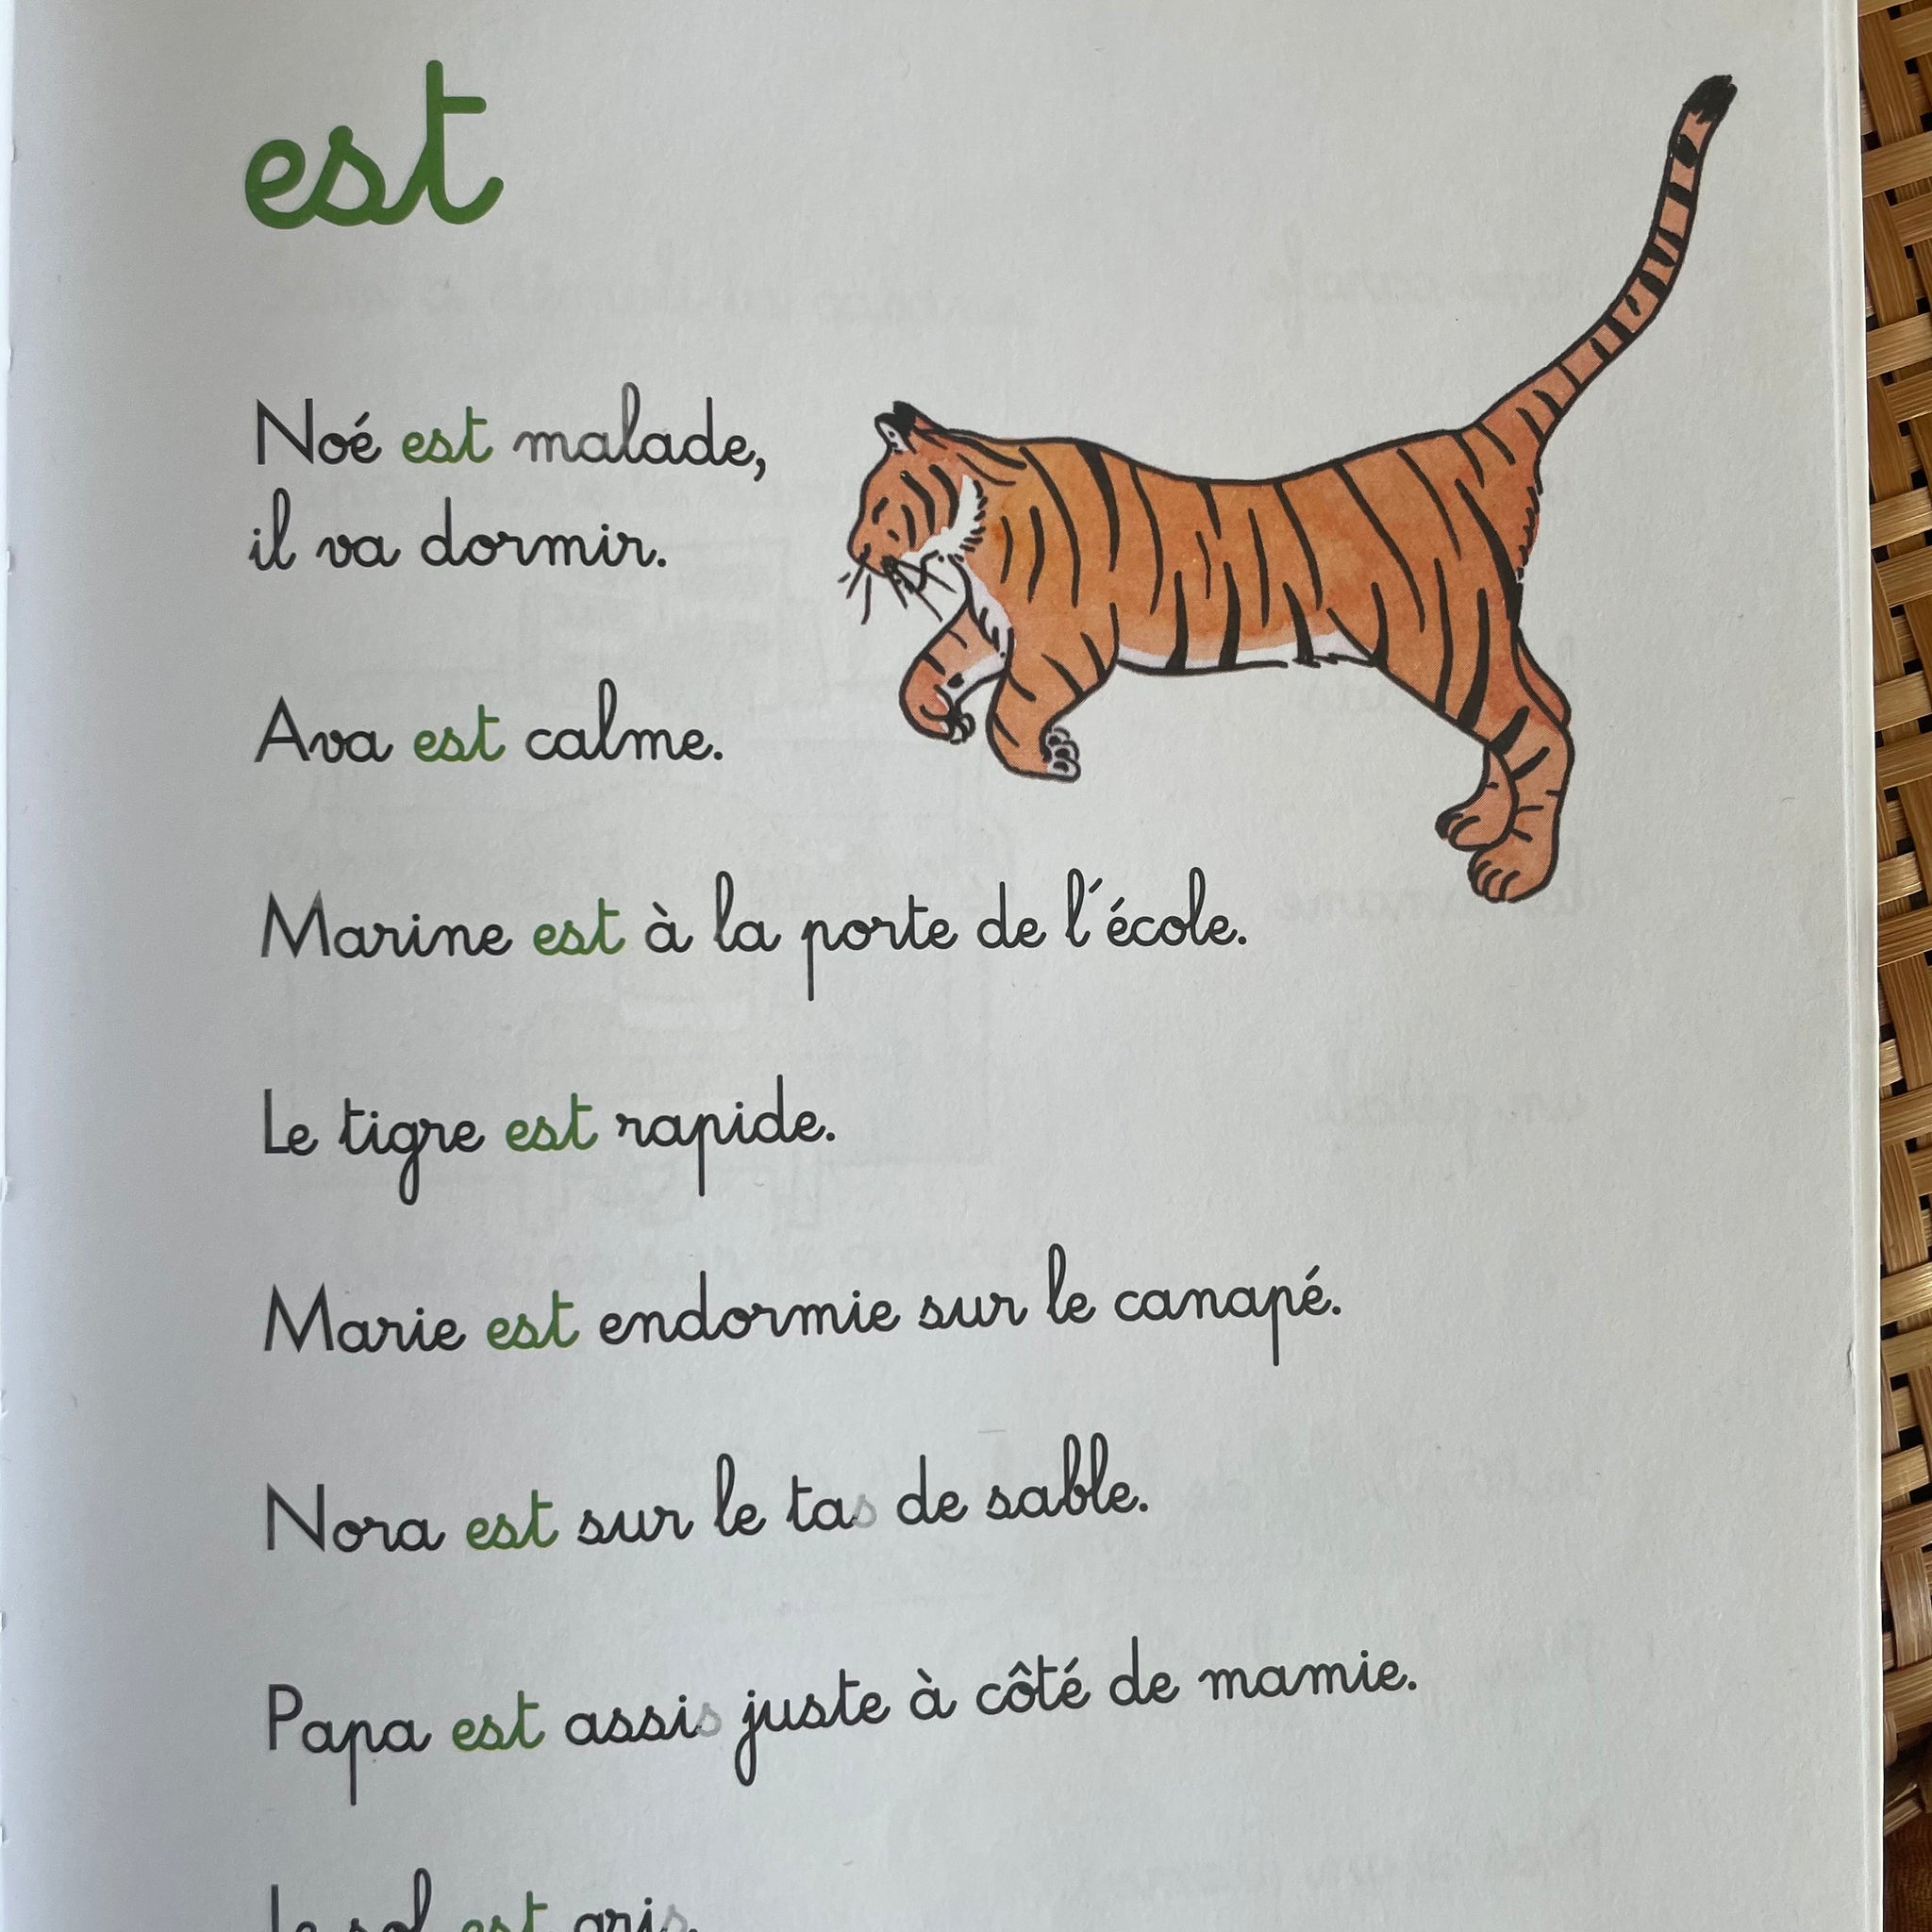 est
Noé est malade,
il va dormir.
Ava est calme.
Marine est à la porte de l'école.
Le tigre est rapide.
Marie est endormie sur le canapé.
Nora est sur le tas de sable.
Papa est assis juste à côté de mamie.
Le sol est gris.